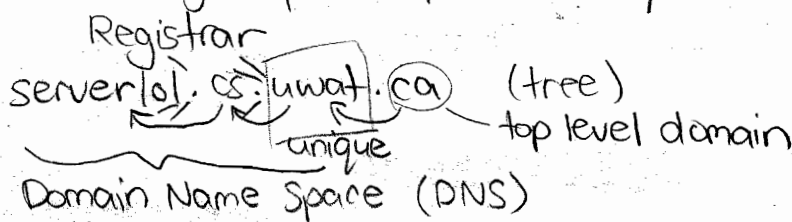 Registrar
server101.cs.uwat.ca (tree)
unique top level domain
Domain Name Space (DNS)